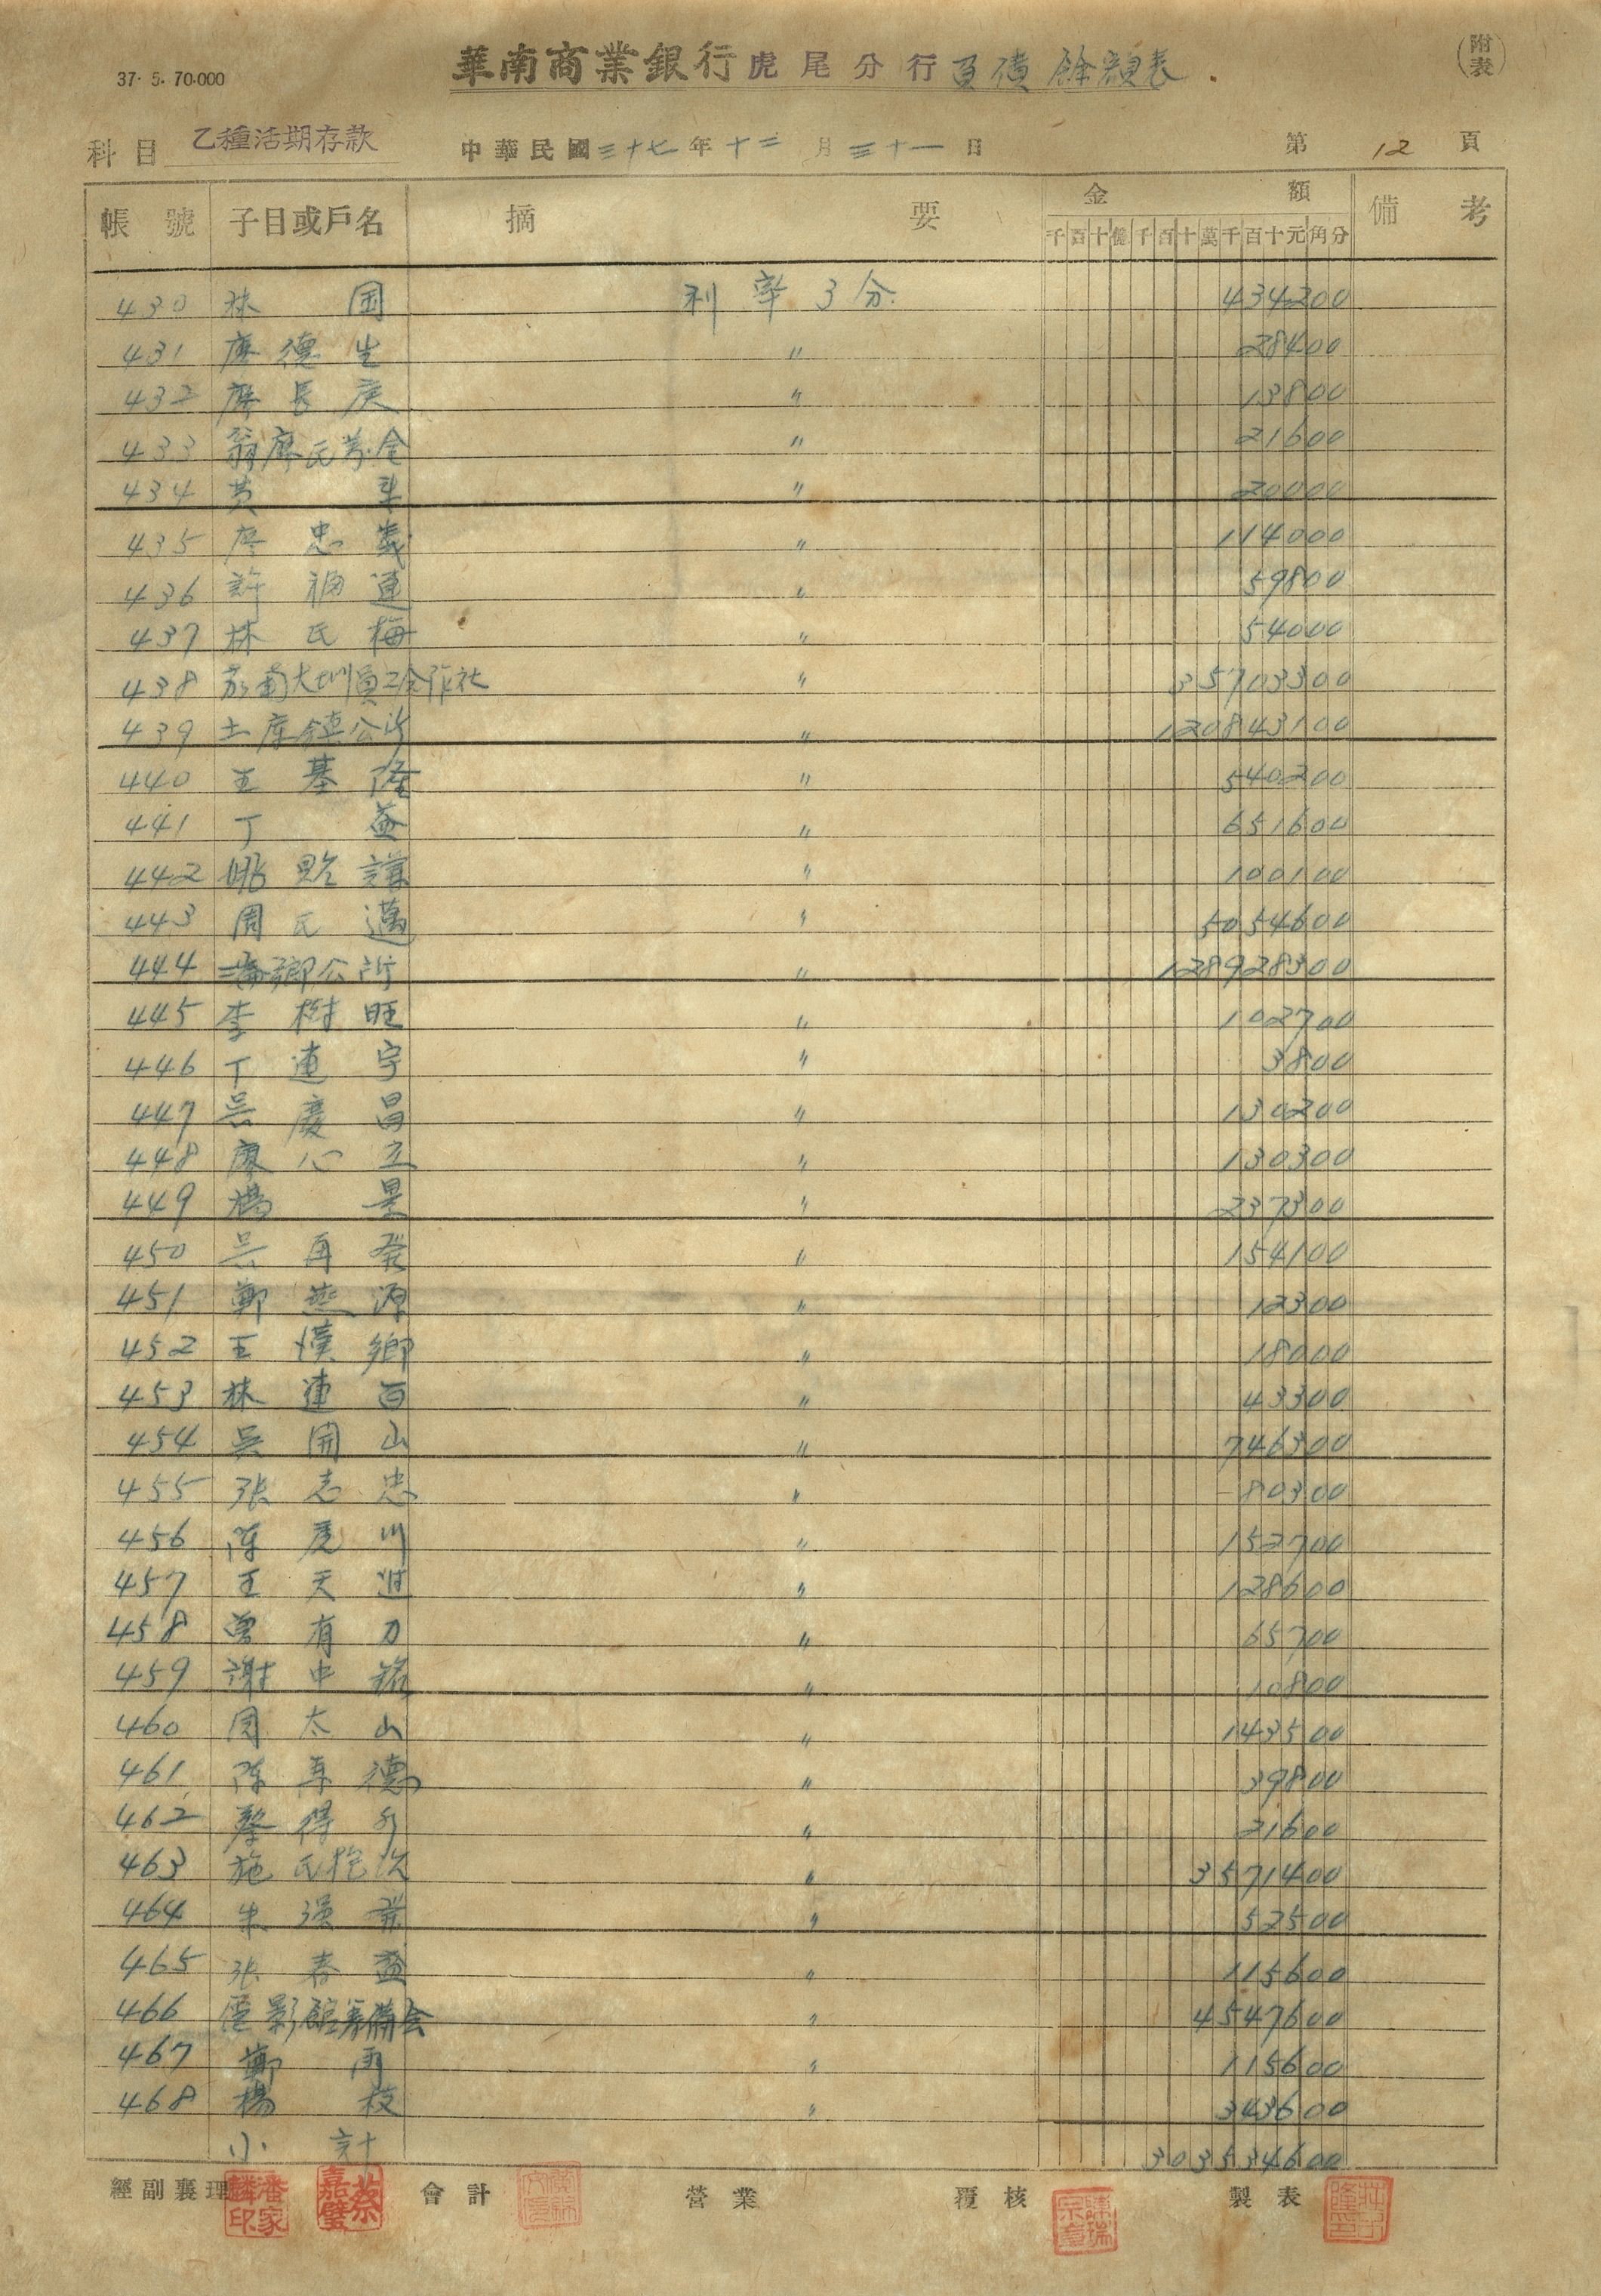 37. 5. 70.000
華南商業銀行虎尾分行負債餘額表.
(附表)
科目 乙種活期存款 中華民國三十七年十二月三十一日 第12頁
帳號 子目或戶名 摘要 金額 備考
千百十億千百十萬千百十元角分
430 林 国 利率3分. 434200
431 廖德生 〃 28400
432 廖長庚 〃 13800
433 翁廖氏萬金 〃 21600
434 黃 〃 20000
435 廖忠義 〃 114000
436 許福連 〃 59800
437 林氏梅 〃 54000
438 荊萄大圳員工合作社 〃 35703300
439 土庫鎮公所 〃 120843100
440 王基隆 〃 540200
441 丁 益 〃 651600
442 姚貽謀 〃 100100
443 周氏邁 〃 5054600
444 鄉公所 〃 128928300
445 李樹旺 〃 102700
446 丁連宇 〃 3800
447 吳慶昌 〃 130200
448 廖心立 〃 130300
449 楊 景 〃 237300
450 吳再發 〃 154100
451 鄭燕源 〃 12300
452 王漢鄉 〃 18000
453 林連百 〃 43300
454 吳開山 〃 746300
455 張志忠 〃 80300
456 陳虎川 〃 152700
457 王天 〃 128600
458 曾有力 〃 65700
459 謝中 〃 10800
460 周太山 〃 143500
461 陳再德 〃 39800
462 蔡得 〃 21600
463 施氏 〃 3571400
464 朱强發 〃 52500
465 張春益 〃 115600
466 電影館籌備会 〃 4547600
467 鄭 雨 〃 115600
468 楊 枝 〃 343600
小計 303534600
經副襄理 會計 營業 覆核 製表
潘家麟印
蔡嘉璧